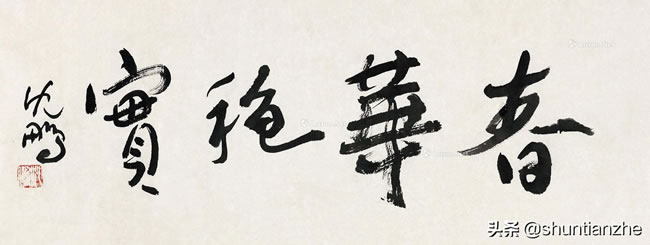 春華穐實
沈鵬
头条 @shuntianzhe